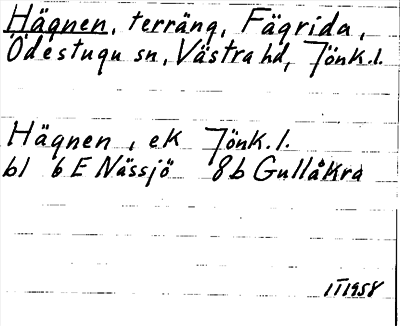 Hägnen, terräng, Fägrida,
Ödestugu sn, Västra hd, Jönk.l.
Hägnen, ek Jönk.l.
bl 6 E Nässjö 8b Gullåkra
1II1958